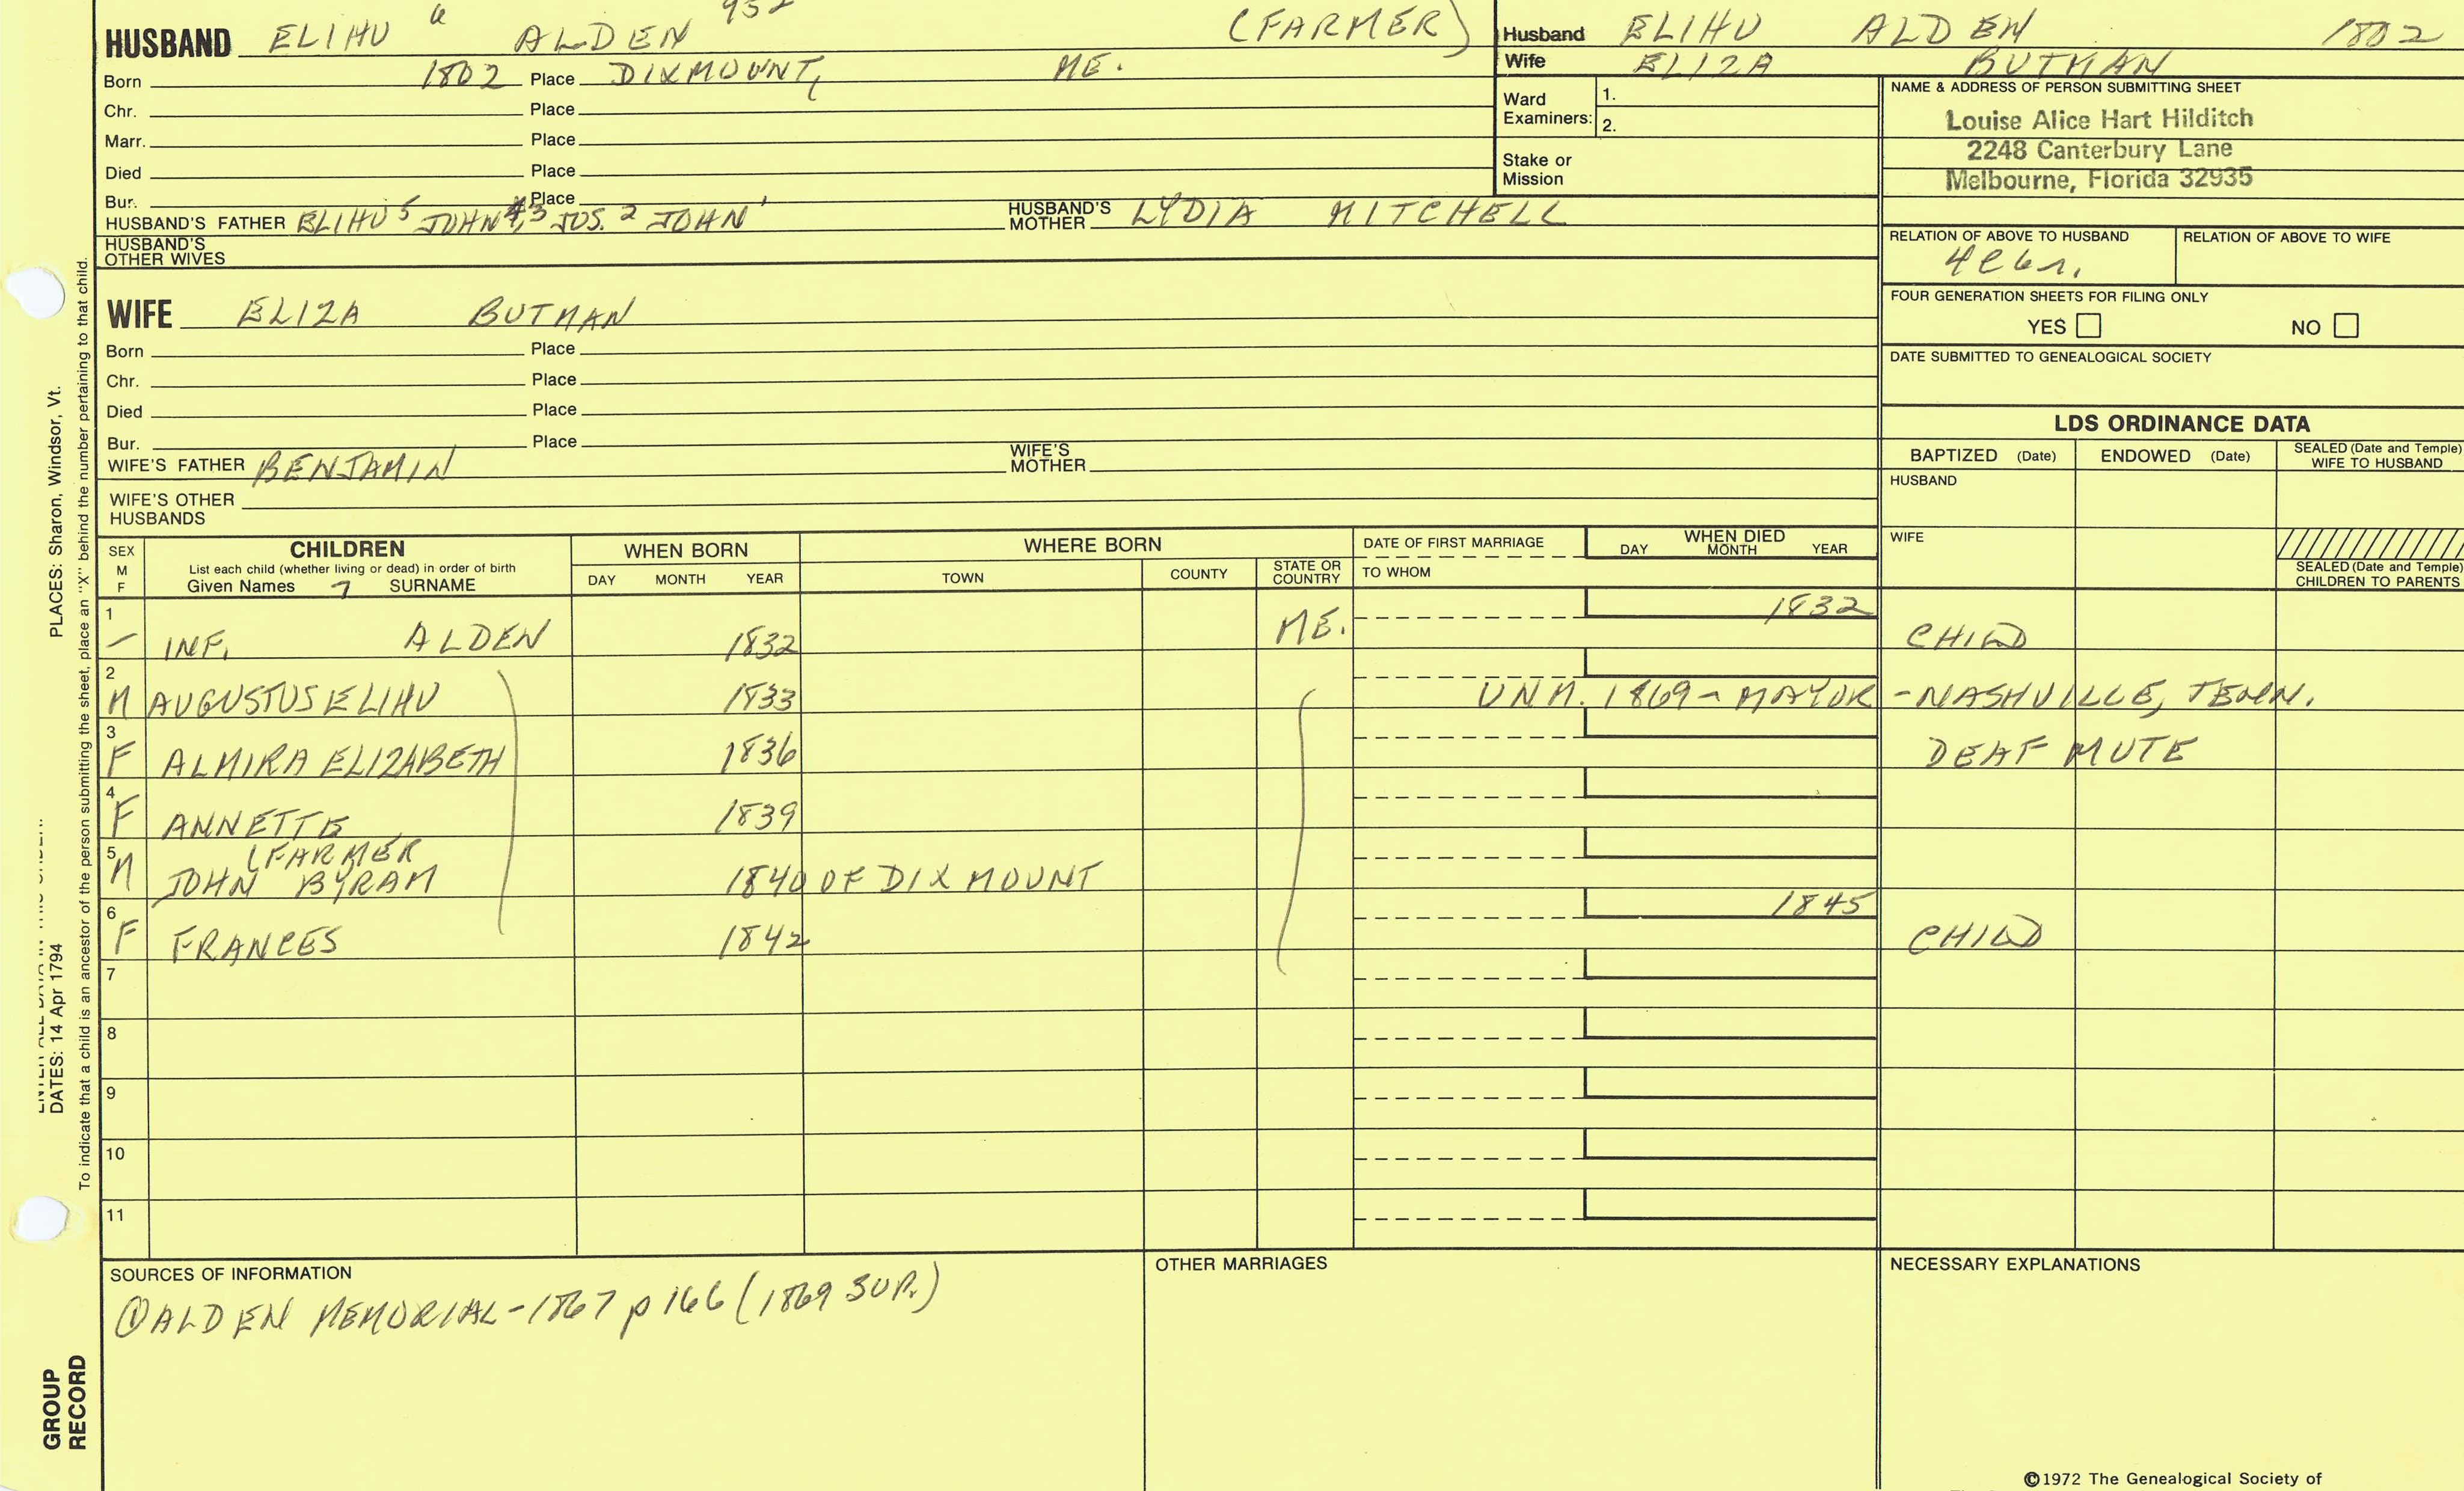 HUSBAND ELIHU 6 ALDEN 952 (FARMER)
Born 1802 Place DIXMOUNT, ME.
Chr. Place
Marr. Place
Died Place
Bur. Place
HUSBAND'S FATHER ELIHU 5 JOHN 4,3 JOS. 2 JOHN 1 HUSBAND'S MOTHER LYDIA MITCHELL
HUSBAND'S OTHER WIVES
Husband ELIHU ALDEN 1802
Wife ELIZA BUTMAN
Ward Examiners: 1.
2.
Stake or Mission
NAME & ADDRESS OF PERSON SUBMITTING SHEET
Louise Alice Hart Hilditch
2248 Canterbury Lane
Melbourne, Florida 32935
RELATION OF ABOVE TO HUSBAND RELATION OF ABOVE TO WIFE
FOUR GENERATION SHEETS FOR FILING ONLY
YES NO
DATE SUBMITTED TO GENEALOGICAL SOCIETY
WIFE ELIZA BUTMAN
Born Place
Chr. Place
Died Place
Bur. Place
WIFE'S FATHER BENJAMIN WIFE'S MOTHER
WIFE'S OTHER HUSBANDS
LDS ORDINANCE DATA
BAPTIZED (Date) ENDOWED (Date) SEALED (Date and Temple) WIFE TO HUSBAND
HUSBAND
WIFE
SEALED (Date and Temple) CHILDREN TO PARENTS
SEX M F CHILDREN WHEN BORN WHERE BORN DATE OF FIRST MARRIAGE WHEN DIED
List each child (whether living or dead) in order of birth
Given Names 7 SURNAME DAY MONTH YEAR TOWN COUNTY STATE OR COUNTRY TO WHOM DAY MONTH YEAR
1 – INF. ALDEN 1832 ME. 1832 CHILD
2 M AUGUSTUS ELIHU 1833 UNM. 1869 - MAYOR - NASHVILLE, TENN.
3 F ALMIRA ELIZABETH 1836 DEAF MUTE
4 F ANNETTE 1839
5 M (FARMER
JOHN BYRAM 1840 OF DIXMOUNT
6 F FRANCES 1842 1845 CHILD
7
8
9
10
11
SOURCES OF INFORMATION
① ALDEN MEMORIAL - 1867 p 166 (1869 SUP.)
OTHER MARRIAGES
NECESSARY EXPLANATIONS
©1972 The Genealogical Society of
PLACES: Sharon, Windsor, Vt.
DATES: 14 Apr 1794
To indicate that a child is an ancestor of the person submitting the sheet, place an "X" behind the number pertaining to that child.
GROUP
RECORD